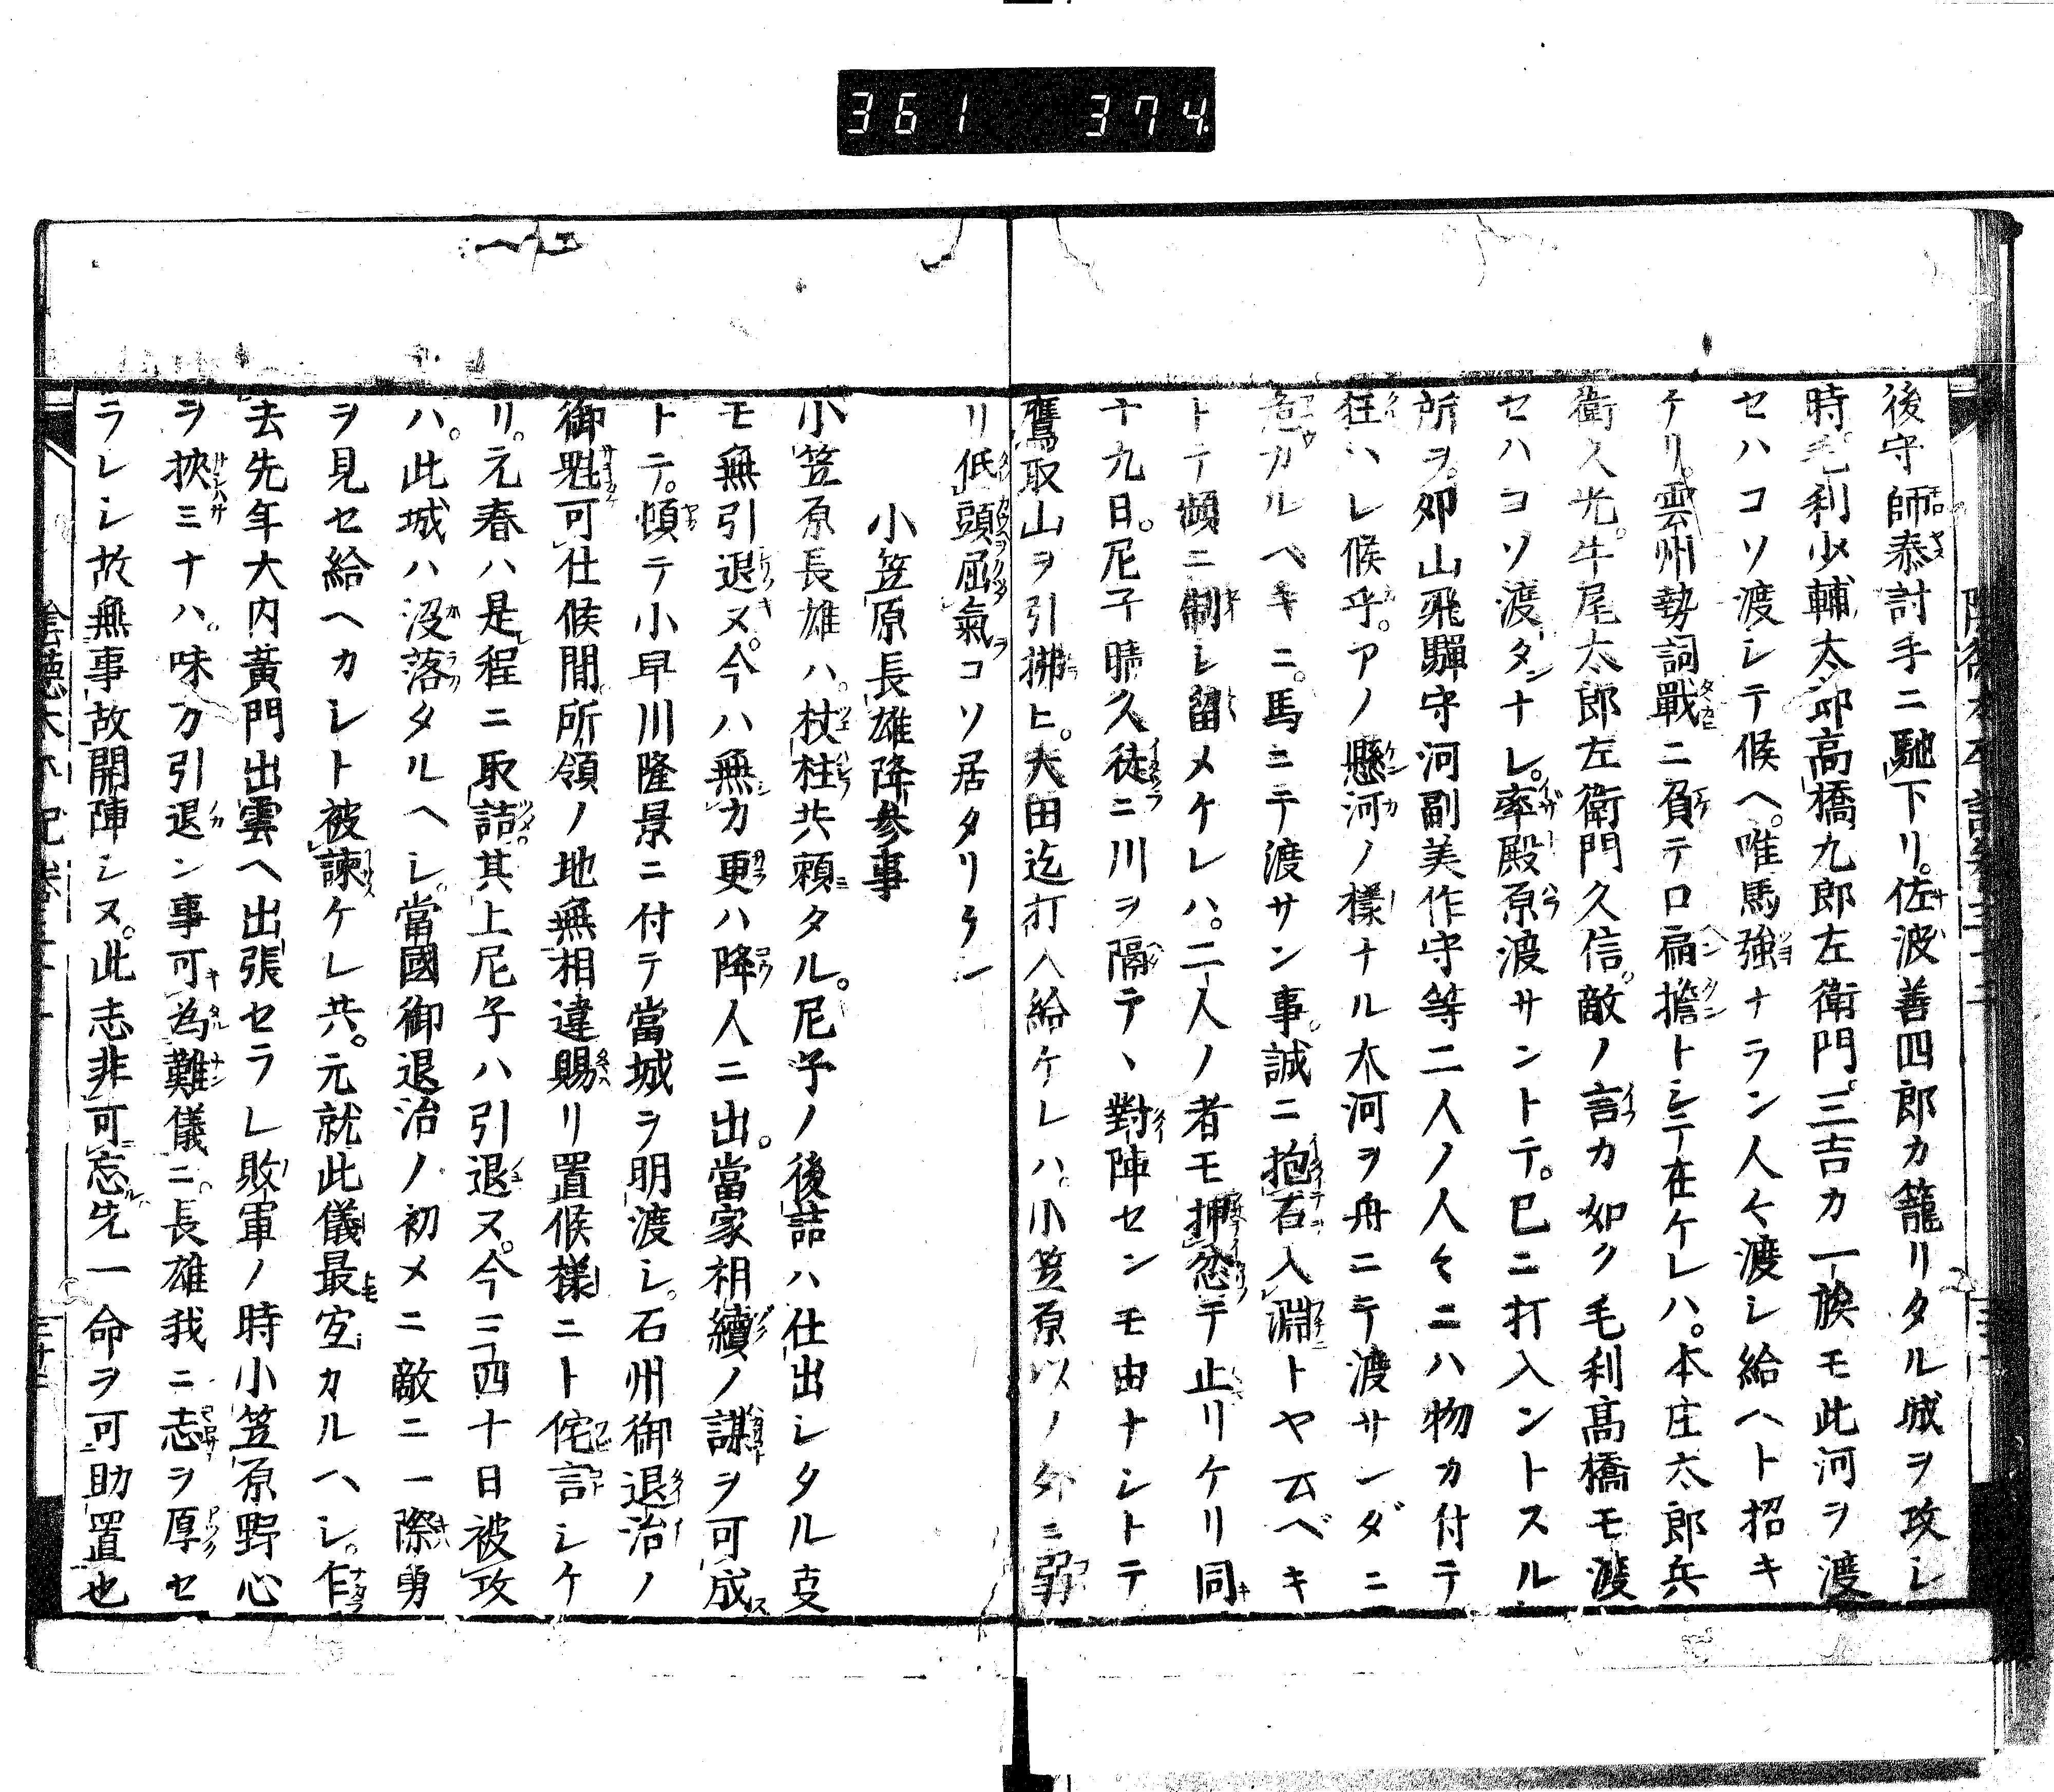 361 374
後守師泰討手ニ馳下リ。佐波善四郎カ籠リタル城ヲ攻シ
時。毛利少輔太郎高橋九郎左衛門。三吉カ一族モ此河ヲ渡
セハコソ渡シテ候へ。唯馬強ナラン人々渡シ給ヘト招キ
ケリ。雲州勢詞戰ニ負テロ扁擔トシテ在ケレハ。本庄太郎兵
衞久光。牛尾太郎左衛門久信。敵ノ言カ如ク毛利髙橋モ渡
セハコソ渡タンナレ。率殿原渡サントテ。已ニ打入ントスル
所ヲ。卯山飛驒守河副美作守等二人ノ人々ニハ物カ付テ
狂ハレ候乎。アノ懸河ノ樣ナル大河ヲ舟ニテ渡サンダニ
危カルヘキニ。馬ニテ渡サン事。誠ニ抱石入淵トヤ云ベキ
トテ頻ニ制シ留メケレハ。二人ノ者モ押忿テ止リケリ同
十九日。尼子晴久徒ニ川ヲ隔テヽ對陣センモ由ナシトテ
鷹取山ヲ引拂ヒ。大田迄打入給ケレハ。小笠原以ノ外ニ弱
リ低頭屈氣コソ居タリケレ
小笠原長雄降參事
小笠原長雄ハ。杖柱共頼タル。尼子ノ後詰ハ仕出シタル支
モ無引退ヌ。今ハ無力更ハ降人ニ出。當家相續ノ謀ヲ可成
トテ。頓テ小早川隆景ニ付テ當城ヲ明渡シ。石州御退治ノ
御魁可仕候間所領ノ地無相違賜リ置候樣ニト侘言シケ
リ。元春ハ是程ニ取詰。其上尼子ハ引退ヌ。今三四十日被攻
ハ。此城ハ沒落タルヘシ。當國御退治ノ初メニ敵ニ一際勇
ヲ見セ給ヘカレト被諫ケレ共。元就此儀最宜カルヘシ。乍
去先年大内黃門出雲ヘ出張セラレ敗軍ノ時小笠原野心
ヲ挾ミナハ。味方引退ン事可為難儀ニ。長雄我ニ志ヲ厚セ
ラレシ故無事故開陣シヌ。此志非可忘先一命ヲ可助置也